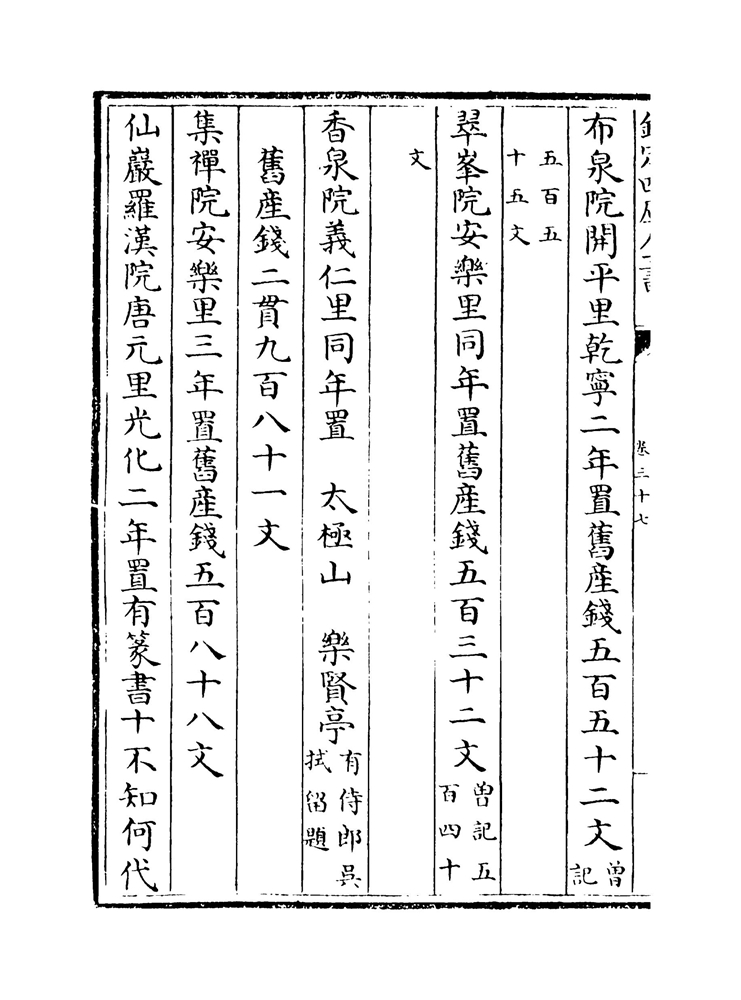 欽定四庫全書
卷三十七
布泉院開平里乾寧二年置舊産錢五百五十二文曾記
五百五十五文
翠峯院安樂里同年置舊産錢五百三十二文曾記五百四十
文
香泉院義仁里同年置　太極山　樂賢亭有侍郎吳拭留題
舊産錢二貫九百八十一文
集禪院安樂里三年置舊産錢五百八十八文
仙巖羅漢院唐元里光化二年置有篆書十不知何代